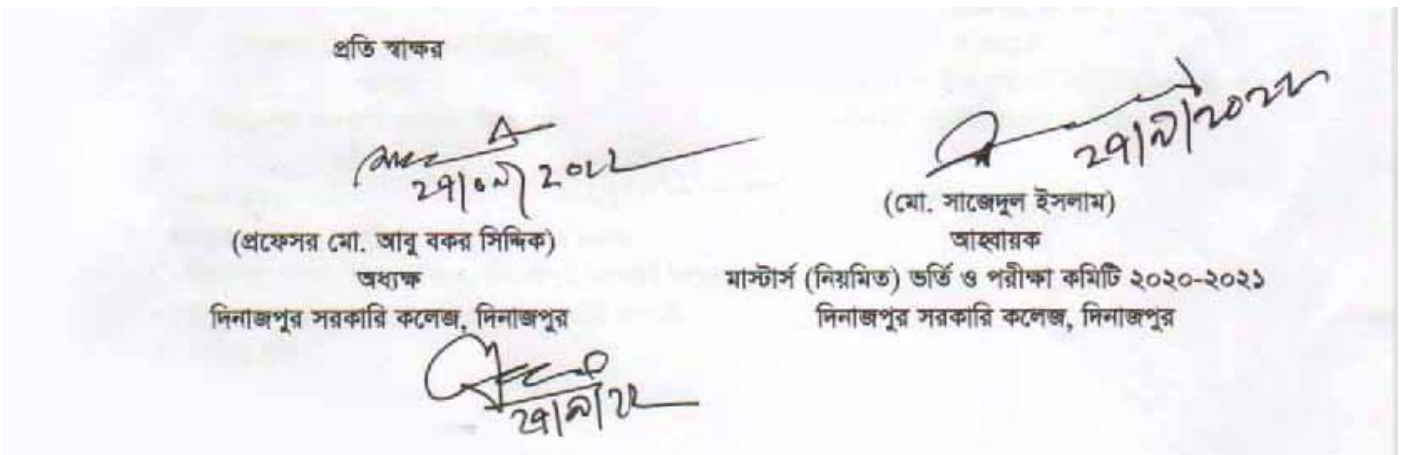 প্রতি স্বাক্ষর
২৭/০৯/২০২২
(প্রফেসর মো. আবু বকর সিদ্দিক)
অধ্যক্ষ
দিনাজপুর সরকারি কলেজ, দিনাজপুর
২৭/৯/২২
২৭/৯/২০২২
(মো. সাজেদুল ইসলাম)
আহ্বায়ক
মাস্টার্স (নিয়মিত) ভর্তি ও পরীক্ষা কমিটি ২০২০-২০২১
দিনাজপুর সরকারি কলেজ, দিনাজপুর